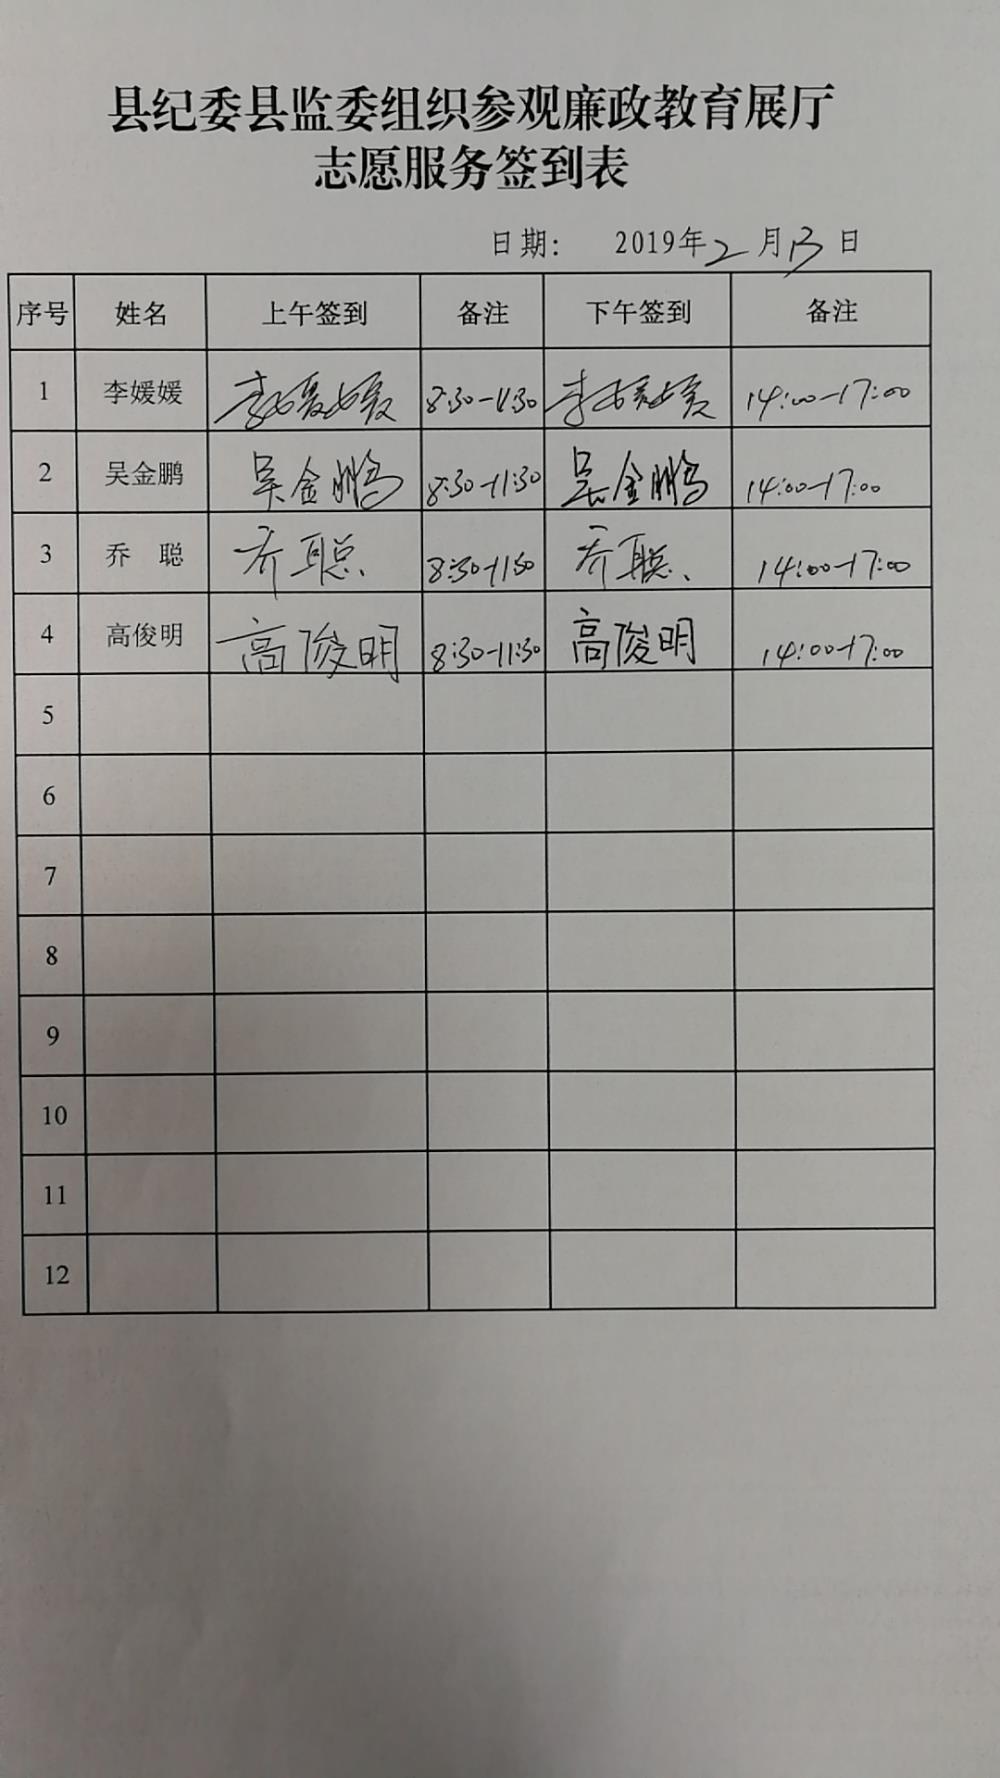 县纪委县监委组织参观廉政教育展厅
志愿服务签到表
日期： 2019年2月13日
序号 姓名 上午签到 备注 下午签到 备注
1 李媛媛 李媛媛 8:30-11:30 李媛媛 14:00-17:00
2 吴金鹏 吴金鹏 8:30-11:30 吴金鹏 14:00-17:00
3 乔 聪 乔聪 8:30-11:30 乔聪 14:00-17:00
4 高俊明 高俊明 8:30-11:30 高俊明 14:00-17:00
5
6
7
8
9
10
11
12